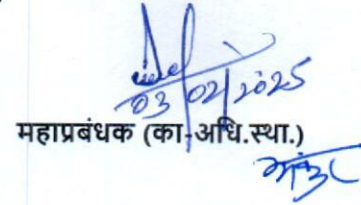 03/02/2025
महाप्रबंधक (का-अधि.स्था.)